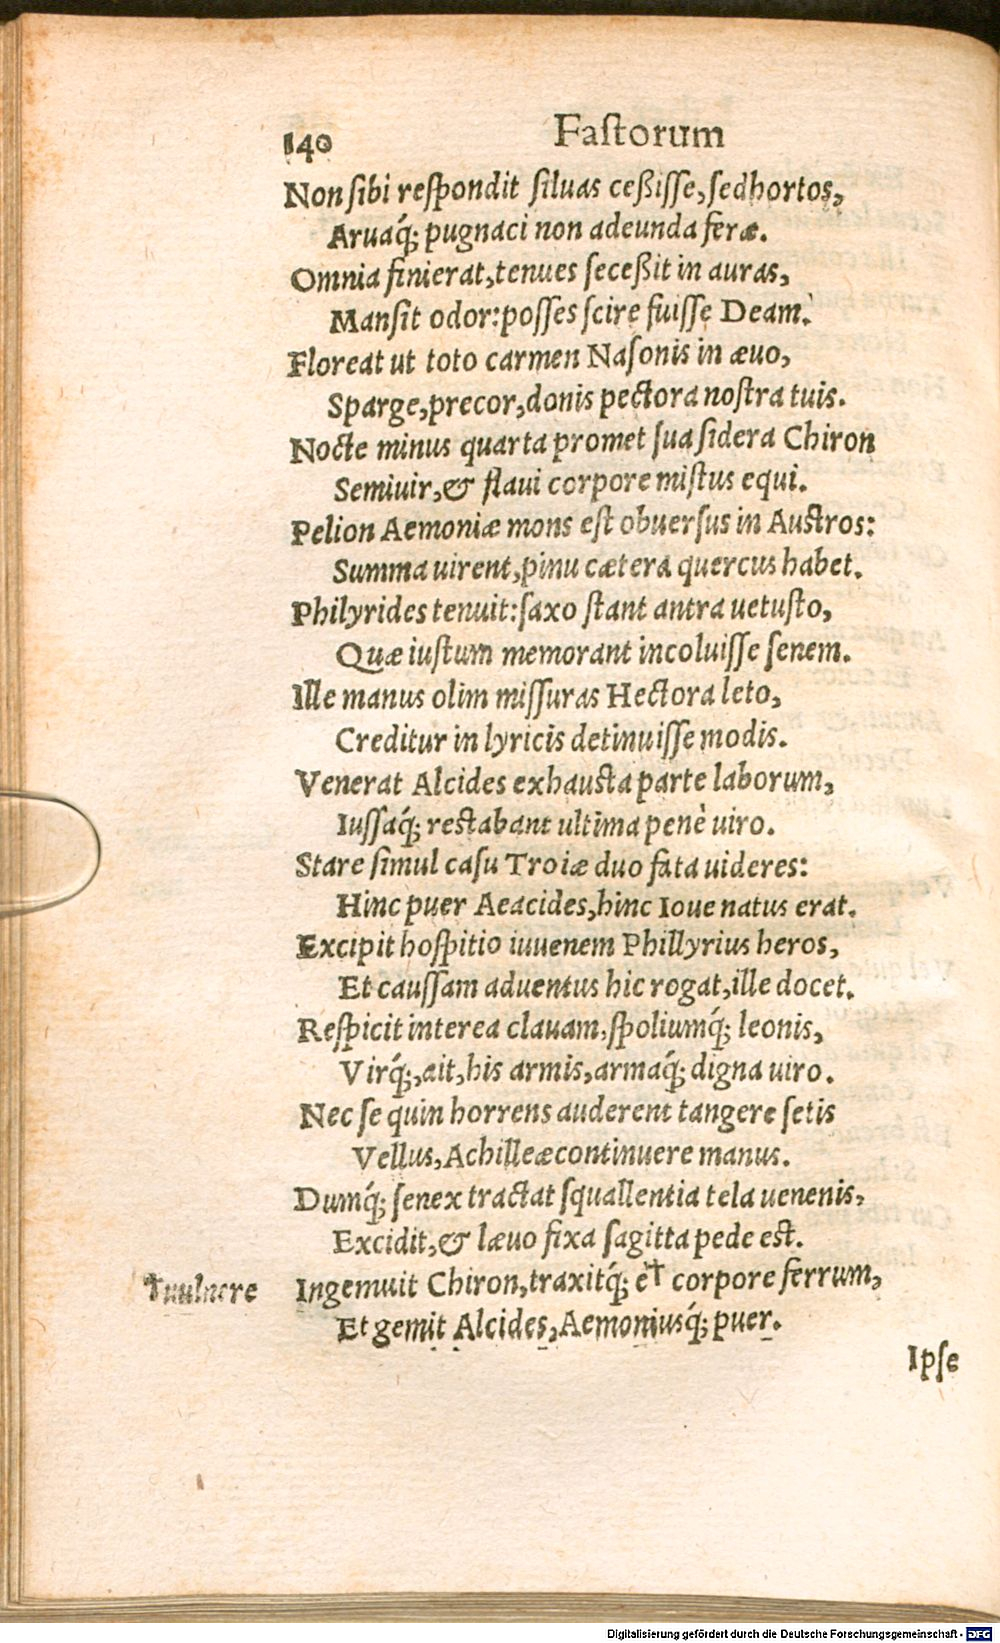 140 Faſtorum
Non ſibi reſpondit ſiluas ceßiſſe, ſed hortos,
Aruaq́; pugnaci non adeunda feræ.
Omnia finierat, tenues ſeceßit in auras,
Manſit odor: poſſes ſcire fuiſſe Deam.
Floreat ut toto carmen Naſonis in æuo,
Sparge, precor, donis pectora noſtra tuis.
Nocte minus quarta promet ſua ſidera Chiron
Semiuir, & flaui corpore miſtus equi.
Pelion Aemoniæ mons eſt obuerſus in Auſtros:
Summa uirent, pinu cætera quercus habet.
Philyrides tenuit: ſaxo ſtant antra uetuſto,
Quæ iuſtum memorant incoluiſſe ſenem.
Ille manus olim miſſuras Hectora leto,
Creditur in lyricis detinuiſſe modis.
Venerat Alcides exhauſta parte laborum,
Iuſſaq́; reſtabant ultima penè uiro.
Stare ſimul caſu Troiæ duo fata uideres:
Hinc puer Aeacides, hinc Ioue natus erat.
Excipit hoſpitio iuuenem Phillyrius heros,
Et cauſſam aduentus hic rogat, ille docet.
Reſpicit interea clauam, ſpoliumq́; leonis,
Virq́;, ait, his armis, armaq́; digna uiro.
Nec ſe quin horrens auderent tangere ſetis
Vellus, Achilleæ continuere manus.
Dumq́; ſenex tractat ſquallentia tela uenenis,
Excidit, & læuo fixa ſagitta pede eſt.
†uulnere Ingemuit Chiron, traxitq́; è† corpore ferrum,
Et gemit Alcides, Aemoniusq́; puer.
Ipſe
Digitalisierung gefördert durch die Deutsche Forschungsgemeinschaft - DFG